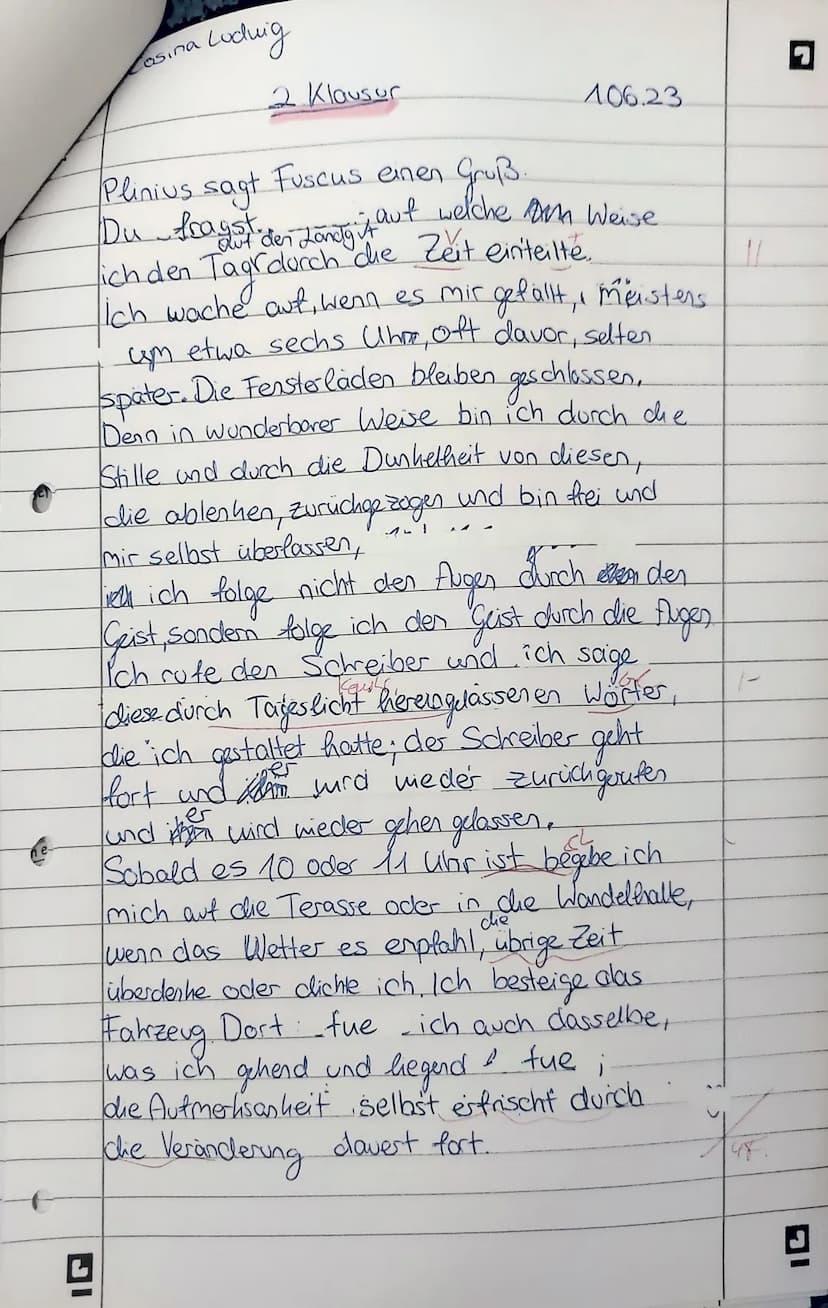 Ludwig
2 Klausur 1.06.23
Plinius sagt Fuscus einen Gruß.
Du fragst, auf welche Weise
auf den Landgut
ich den Tag durch die Zeit einteilte.
Ich wache auf, wenn es mir gefällt, meistens
um etwa sechs Uhr, oft davor, selten
später. Die Fensterläden bleiben geschlossen,
Denn in wunderbarer Weise bin ich durch die
Stille und durch die Dunkelheit von diesen,
die ablenken, zurückgezogen und bin frei und
mir selbst überlassen,
ich folge nicht den Augen durch den
Geist, sondern folge ich den Geist durch die Augen
Ich rufe den Schreiber und ich sage
diese durch Tageslicht hereingelassenen Wörter,
die ich gestaltet hatte; der Schreiber geht
er
fort und wird wieder zurückgerufen
er
und wird wieder gehen gelassen.
Sobald es 10 oder 11 Uhr ist begebe ich
mich auf die Terasse oder in die Wandelhalle,
die
wenn das Wetter es empfahl, übrige Zeit
überdenke oder dichte ich. Ich besteige das
Fahrzeug. Dort tue ich auch dasselbe,
was ich gehend und liegend tue ;
die Aufmerksamkeit selbst erfrischt durch
die Veränderung dauert fort.